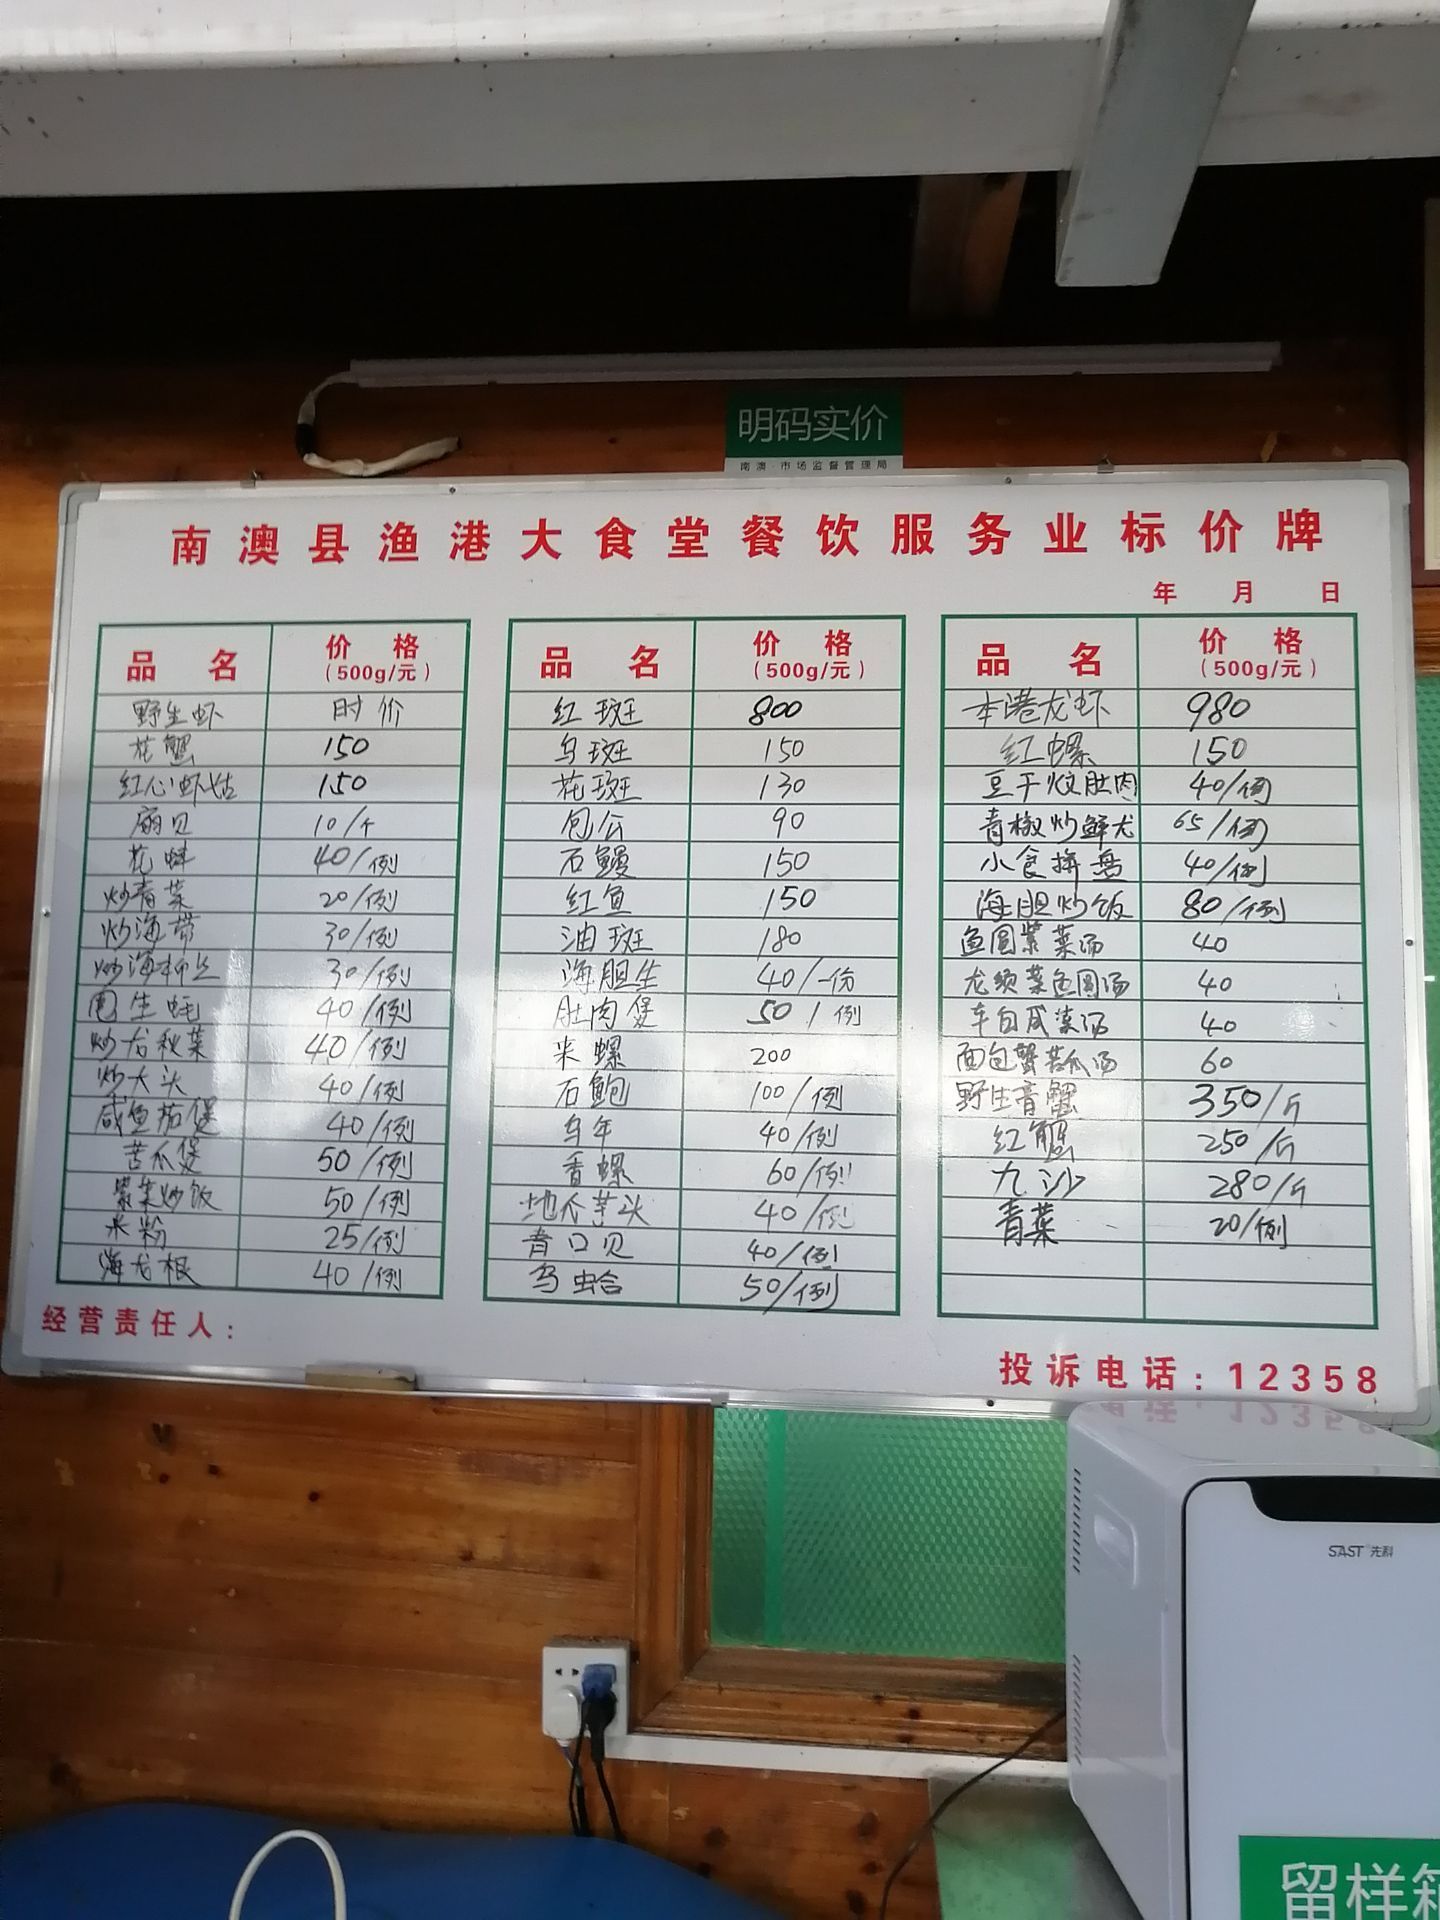 明码实价
南澳·市场监督管理局
南澳县渔港大食堂餐饮服务业标价牌
年 月 日
品名 价格 (500g/元)
野生虾 时价
花蟹 150
红心虾姑 150
扇贝 10/个
花蚌 40/例
炒青菜 20/例
炒海带 30/例
炒海柿丝 30/例
生蚝 40/例
炒龙秋菜 40/例
炒大头 40/例
咸鱼茄煲 40/例
苦瓜煲 50/例
紫菜炒饭 50/例
米粉 25/例
海龙根 40/例
品名 价格 (500g/元)
红斑 800
乌斑 150
花斑 130
包公 90
石鳗 150
红鱼 150
油斑 180
海胆生 40/一份
肚肉煲 50/例
米螺 200
石鲍 100/例
乌年 40/例
香螺 60/例
地瓜芋头 40/例
青口贝 40/例
乌蛤 50/例
品名 价格 (500g/元)
本港龙虾 980
红螺 150
豆干炆肚肉 40/例
青椒炒鲜尤 65/例
小食拼盘 40/例
海胆炒饭 80/例
鱼圆紫菜汤 40
龙须菜鱼圆汤 40
车白咸菜汤 40
面包蟹苦瓜汤 60
野生青蟹 350/斤
红蟹 250/斤
九沙 280/斤
青菜 20/例
经营责任人：
投诉电话：12358
SAST 先科
留样箱